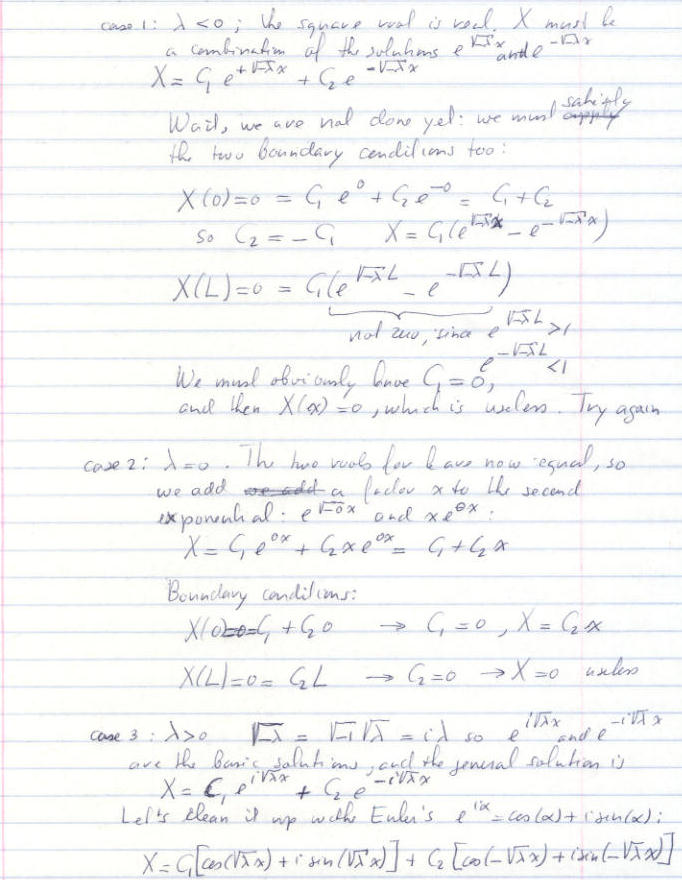 case 1: λ < 0 ; the square root is real. X must be
a combination of the solutions e^{√-λ x} and e^{-√-λ x}
X = C₁ e^{+√-λ x} + C₂ e^{-√-λ x}
Wait, we are not done yet: we must satisfy
the two boundary conditions too:
X(0)=0 = C₁ e^0 + C₂ e^{-0} = C₁+C₂
so C₂ = -C₁ X = C₁(e^{√-λ x} - e^{-√-λ x})
X(L)=0 = C₁(e^{√-λ L} - e^{-√-λ L})
not zero, since e^{√-λ L} >1
e^{-√-λ L} <1
We must obviously have C₁ = 0,
and then X(x) = 0, which is useless. Try again
case 2: λ=0. The two roots for k are now equal, so
we add we add a factor x to the second
exponential: e^{√-0 x} and x e^{0x}:
X = C₁ e^{0x} + C₂ x e^{0x} = C₁ + C₂ x
Boundary conditions:
X(0)=0=C₁ + C₂ 0 → C₁ = 0, X = C₂ x
X(L)=0 = C₂ L → C₂=0 → X=0 useless
case 3: λ>0 √-λ = √-1 √λ = iλ so e^{i√λ x} and e^{-i√λ x}
are the basic solutions, and the general solution is
X = C₁ e^{i√λ x} + C₂ e^{-i√λ x}
Let's clean it up with Euler's e^{iα} = cos(α) + i sin(α):
X = C₁[cos(√λ x) + i sin(√λ x)] + C₂[cos(-√λ x) + i sin(-√λ x)]